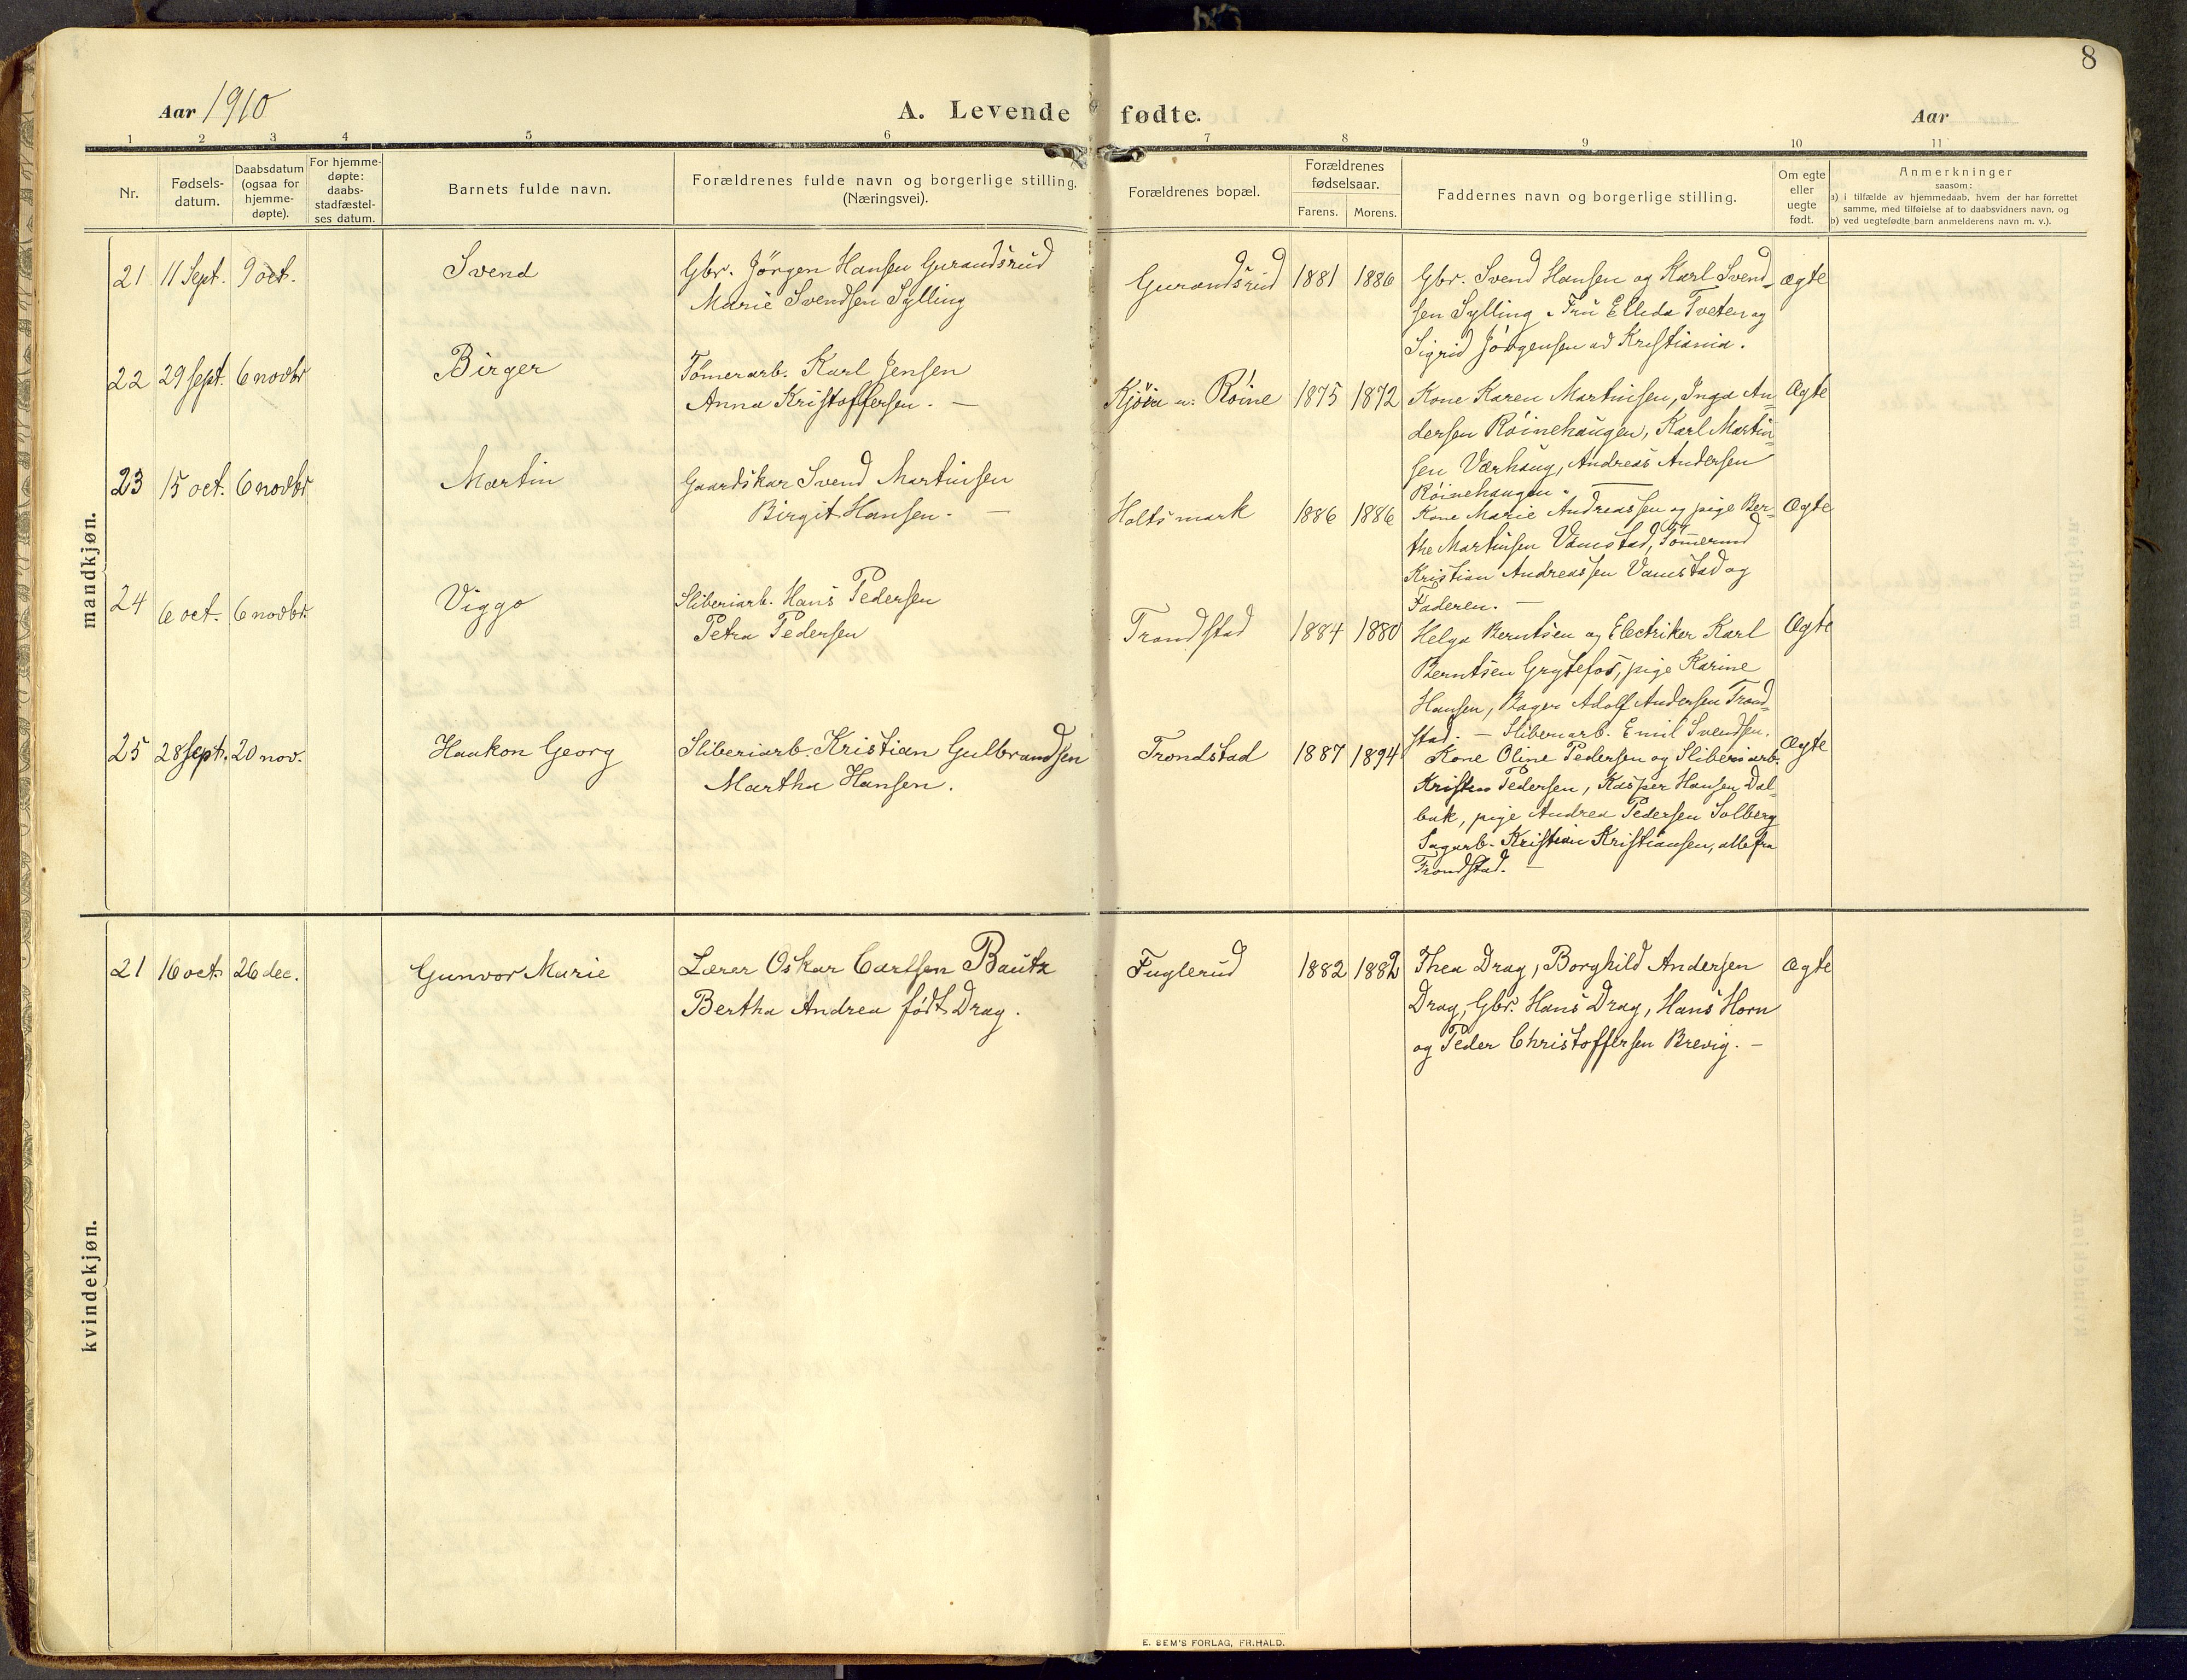 8
Aar 1910
A. Levende fødte.
Aar
1 2 3 4 5 6 7 8 9 10 11
Nr.
Fødsels-
datum.
Daabsdatum
(ogsaa for
hjemme-
døpte).
For hjemme-
døpte:
daabs-
stadfæstel-
ses datum.
Barnets fulde navn.
Forældrenes fulde navn og borgerlige stilling.
(Næringsvei).
Forældrenes bopæl.
Forældrenes
fødselsaar.
Farens. Morens.
Faddernes navn og borgerlige stilling.
Om egte
eller
uegte
født.
Anmerkninger
saasom:
a) i tilfælde av hjemmedaab, hvem der har forrettet
samme, med tilføielse af to daabsvidners navn, og
b) ved uegtefødte barn anmelderens navn m. v.).
mandkjøn.
21 11 Sept. 9 oct. Svend
Gbr. Jörgen Hansen Gurandsrud
Marie Svendsen Sylling
Gurandsrud 1881 1886
Gbr. Svend Hansen og Karl Svend-
sen Sylling. Fru Elleda Tveten og
Sigrid Jörgensen ad Kristiania.
ægte
22 29 sept. 6 novbr Birger
Tömerarb. Karl Jensen
Anna Kristoffersen. —
Röine 1875 1872
Kone Karen Martinsen, Inga An-
dersen Röinehaugen, Karl Martin-
sen Værhaug, Andreas Andersen
Röinehaugen. —
Ægte
23 15 oct. 6 novbr Martin
Gaardskar Svend Martinsen
Birgit Hansen. —
Holtsmark 1886 1886
Kone Marie Andreassen og pige Ber-
the Martinsen Vamstad, Tömermd
Kristian Andreassen Vamstad og
Faderen. —
Ægte
24 6 oct. 6 novbr. Viggo
Sliberiarb. Hans Pedersen
Petra Pedersen
Trondstad 1884 1880
Helga Berntsen og Electriker Karl
Berntsen Grytefos, pige Karine
Hansen, Bager Adolf Andersen Trond-
stad. — Sliberiarb. Emil Svendsen.
Ægte
25 28 sept. 20 nov. Haakon Georg
Sliberiarb. Kristian Gulbrandsen
Martha Hansen.
Trondstad 1887 1894
Kone Oline Pedersen og Sliberiarb.
Pedersen, Kasper Hansen Dal-
bak, pige Andrea Pedersen Solberg
Sagarb. Kristian Kristiansen, alle fra
Trondstad. —
Ægte
kvindekjøn.
21 16 oct. 26 dec. Gunvor Marie
Lærer Oskar Carlsen Bautz
Bertha Andrea födt Drag.
Fuglerud 1882 1882
Thea Drag, Borghild Andersen
Drag, Gbr. Hans Drag, Hans Horn
og Peder Christoffersen Brevig. —
Ægte
E. SEM'S FORLAG, FR.HALD.